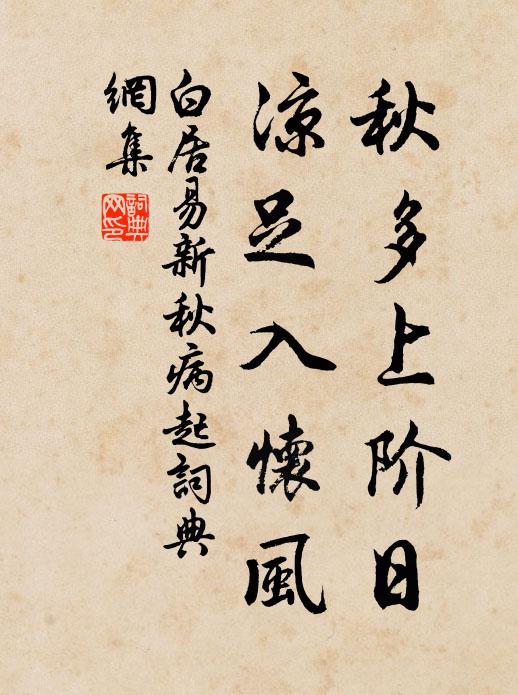 秋多上阶日
凉足入懷風
白居易新秋病起詞典
網集
詞典網印